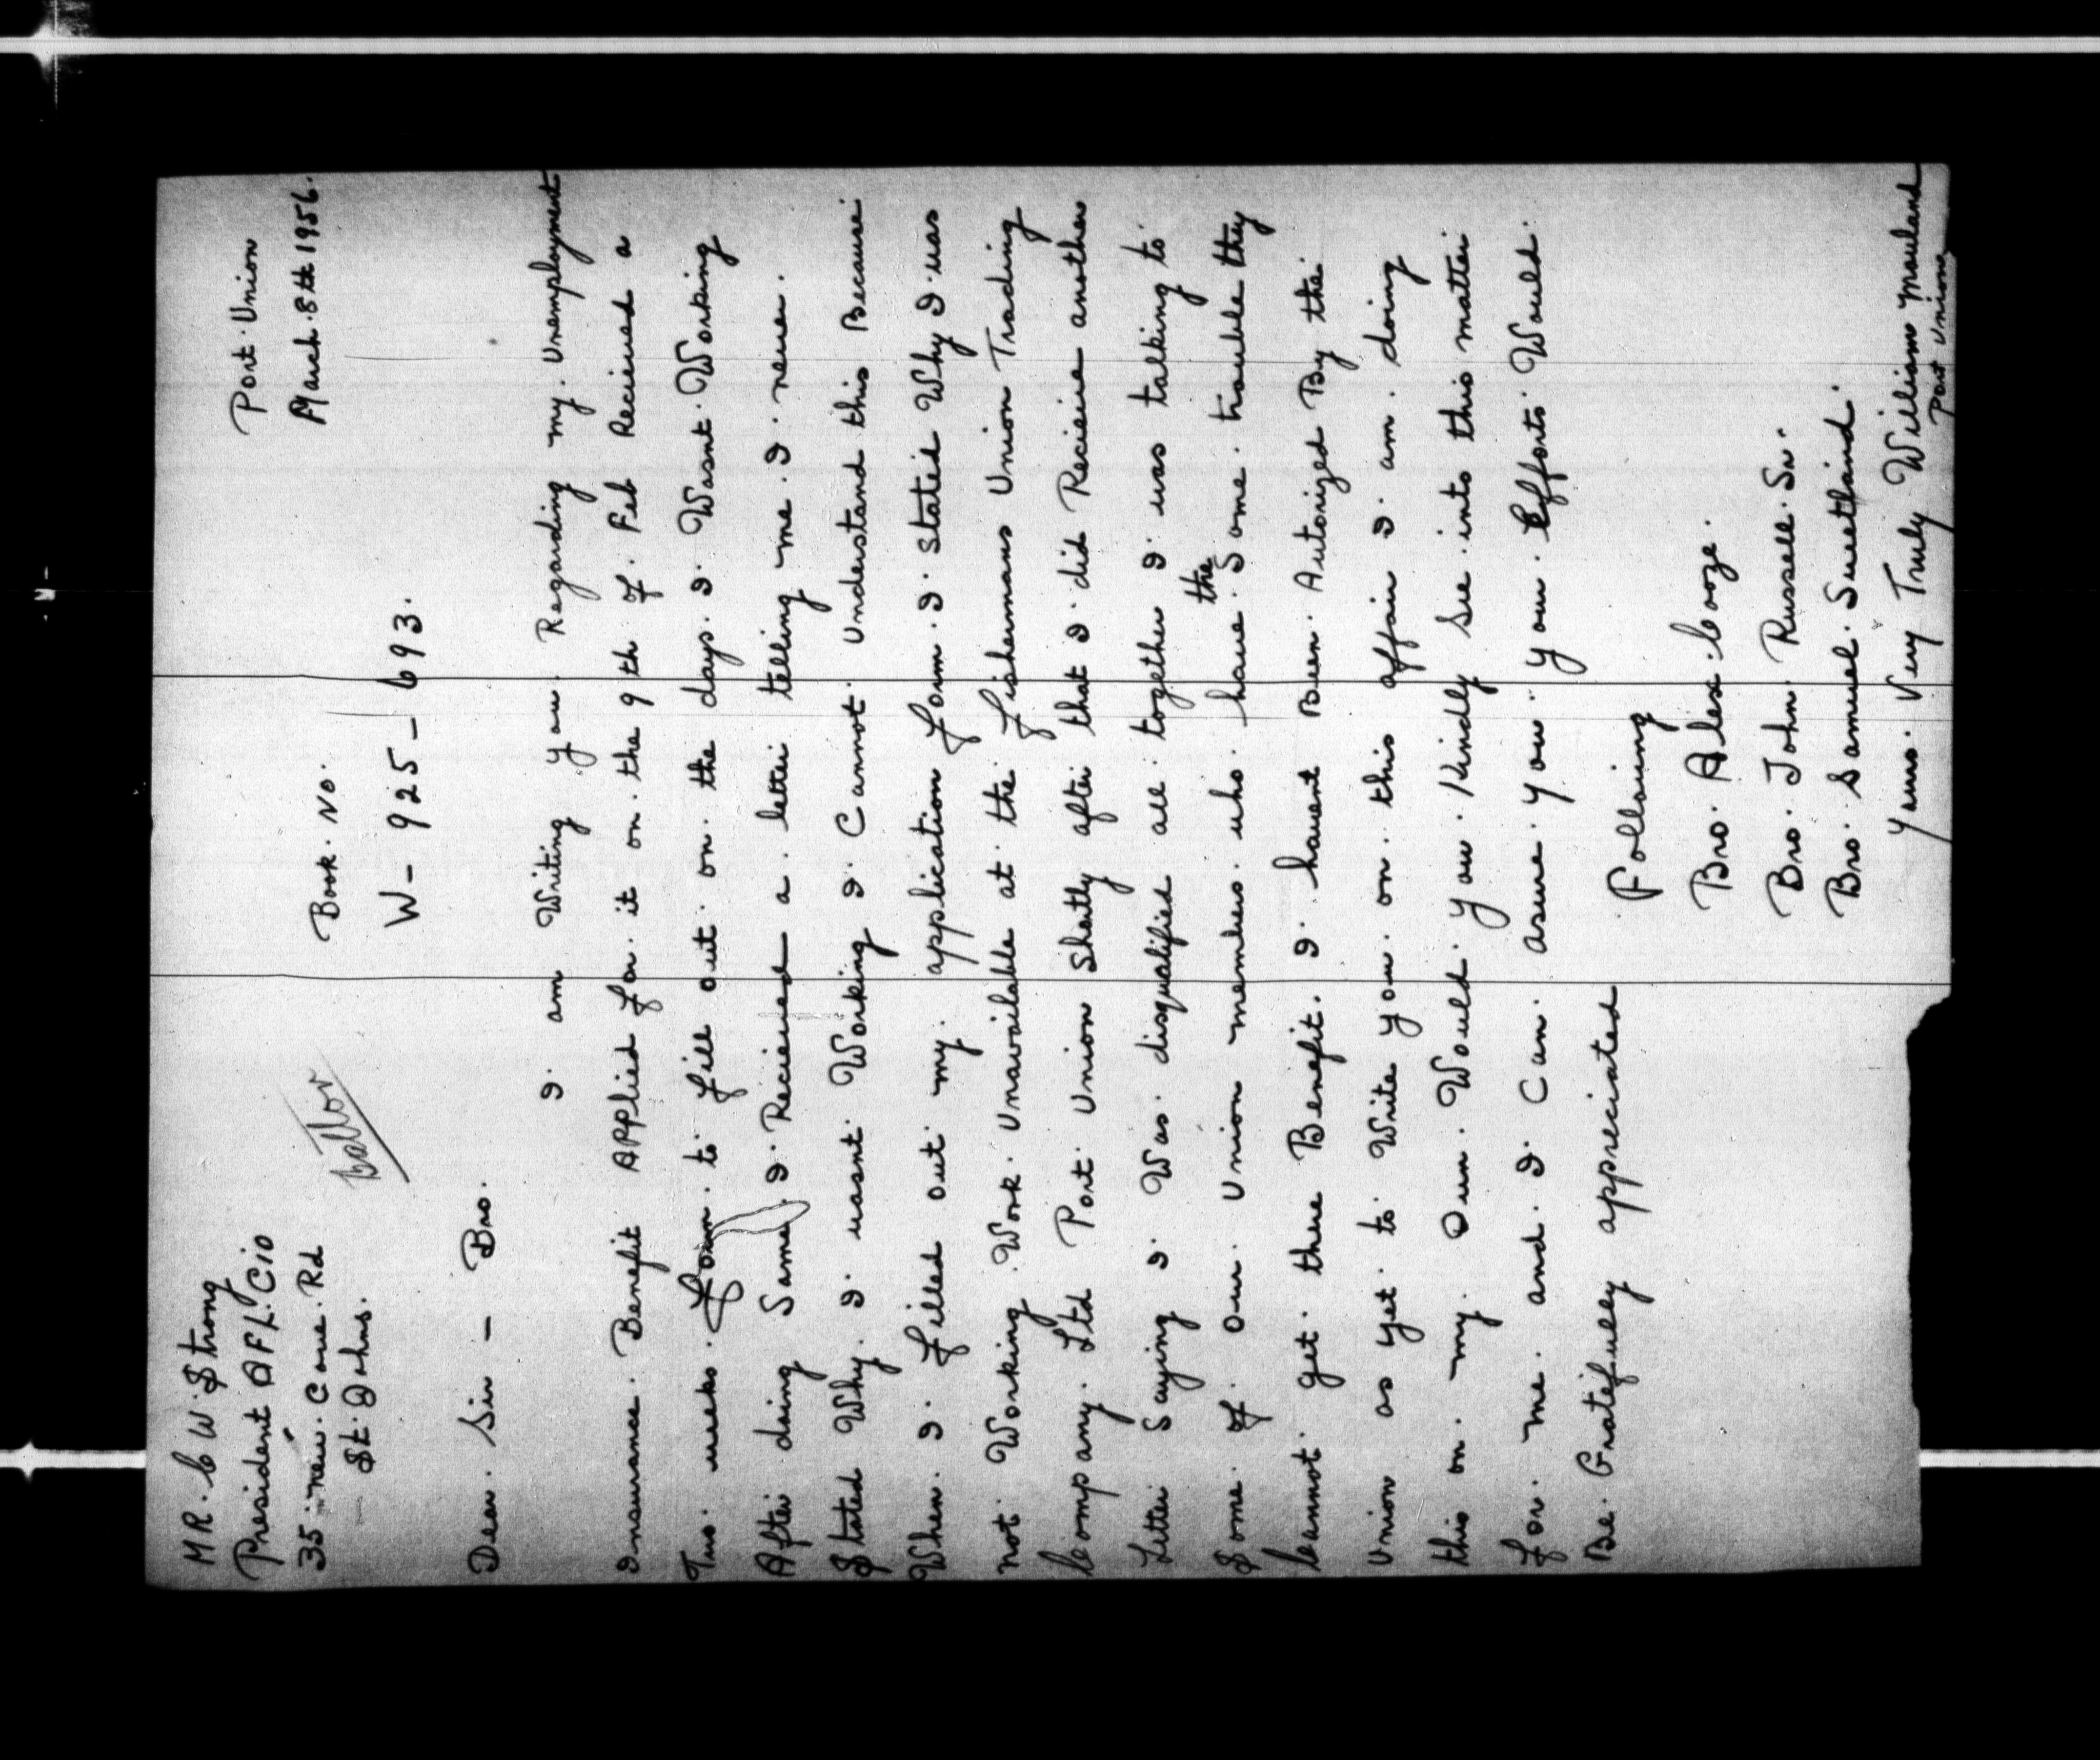 MR. C W. Strong
President AFL. CIO
35 new. Cove. Rd
St. Johns.
Port. Union
March. 8th 1956.
Book. No.
W - 925 - 693.
Dear. Sir - Bro.
I. am Writing you. Regarding my. Unemployment
Insurance. Benefit Applied for. it on. the 9th of. Feb Recieved a
Two. weeks. form. to. fill out. on. the days. I. Wasnt. Working
After doing Same. I. Recieved a. letter telling me. I. never.
Stated Why. I. wasnt. Working I. Cannot. Understand this Because.
When. I. filled out my. application form. I. stated Why I. was
not. Working. Work. Unavailable at the. fishermans Union Trading
Company. Ltd Port. Union Shotly after that I. did Recieve another
Letter Saying I. Was. disqualified all. together I. was talking to.
Some. of. our. Union members. who. have. the Some. trouble they
Cannot. get. there Benefit. I. havent Been. Autorized By the.
Union as yet. to. Write you. on. this affair I. am. doing
this on. my. Own. Would. you. Kindly See. into this matter
for. me. and. I. Can. asure. you. your. Efforts. Would.
Be. Gratefully appreciated
Following
Bro. Alex. Cooze.
Bro. John. Russell. Sr.
Bro. Samuel. Sweetland.
Yours. Very Truly William Mouland
Port Union